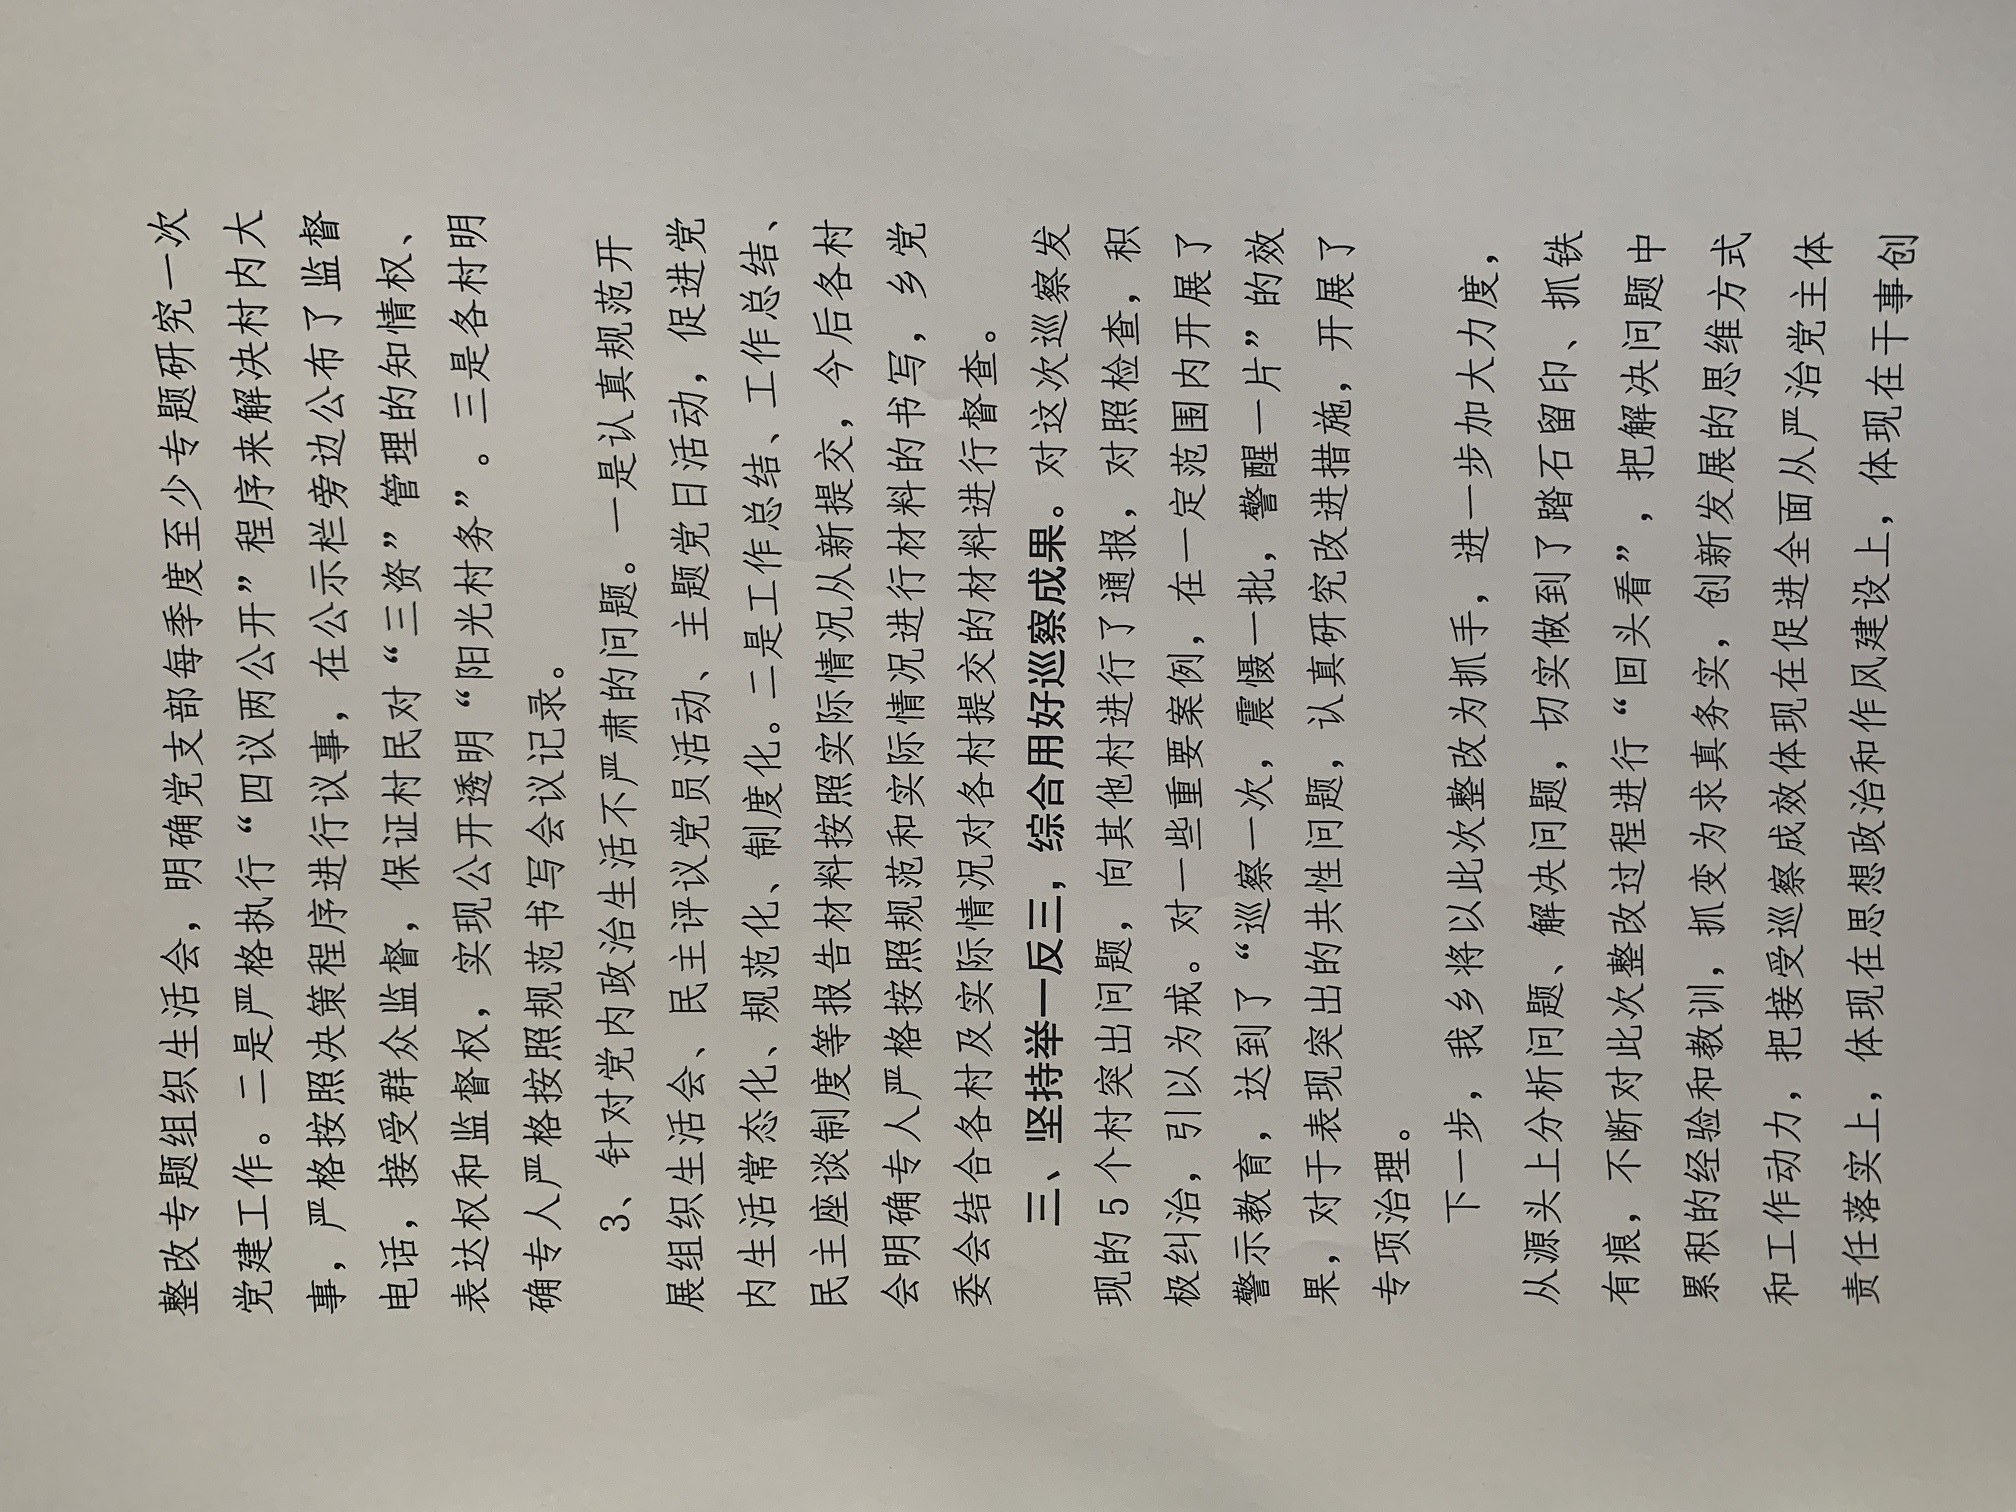 整改专题组织生活会，明确党支部每季度至少专题研究一次
党建工作。二是严格执行“四议两公开”程序来解决村内大
事，严格按照决策程序进行议事，在公示栏旁边公布了监督
电话，接受群众监督，保证村民对“三资”管理的知情权、
表达权和监督权，实现公开透明“阳光村务”。三是各村明
确专人严格按照规范书写会议记录。
3、针对党内政治生活不严肃的问题。一是认真规范开
展组织生活会、民主评议党员活动、主题党日活动，促进党
内生活常态化、规范化、制度化。二是工作总结、工作总结、
民主座谈制度等报告材料按照实际情况从新提交，今后各村
会明确专人严格按照规范和实际情况进行材料的书写，乡党
委会结合各村及实际情况对各村提交的材料进行督查。
三、坚持举一反三，综合用好巡察成果。对这次巡察发
现的5个村突出问题，向其他村进行了通报，对照检查，积
极纠治，引以为戒。对一些重要案例，在一定范围内开展了
警示教育，达到了“巡察一次，震慑一批，警醒一片”的效
果，对于表现突出的共性问题，认真研究改进措施，开展了
专项治理。
下一步，我乡将以此次整改为抓手，进一步加大力度，
从源头上分析问题、解决问题，切实做到了踏石留印、抓铁
有痕，不断对此次整改过程进行“回头看”，把解决问题中
累积的经验和教训，抓变为求真务实，创新发展的思维方式
和工作动力，把接受巡察成效体现在促进全面从严治党主体
责任落实上，体现在思想政治和作风建设上，体现在干事创